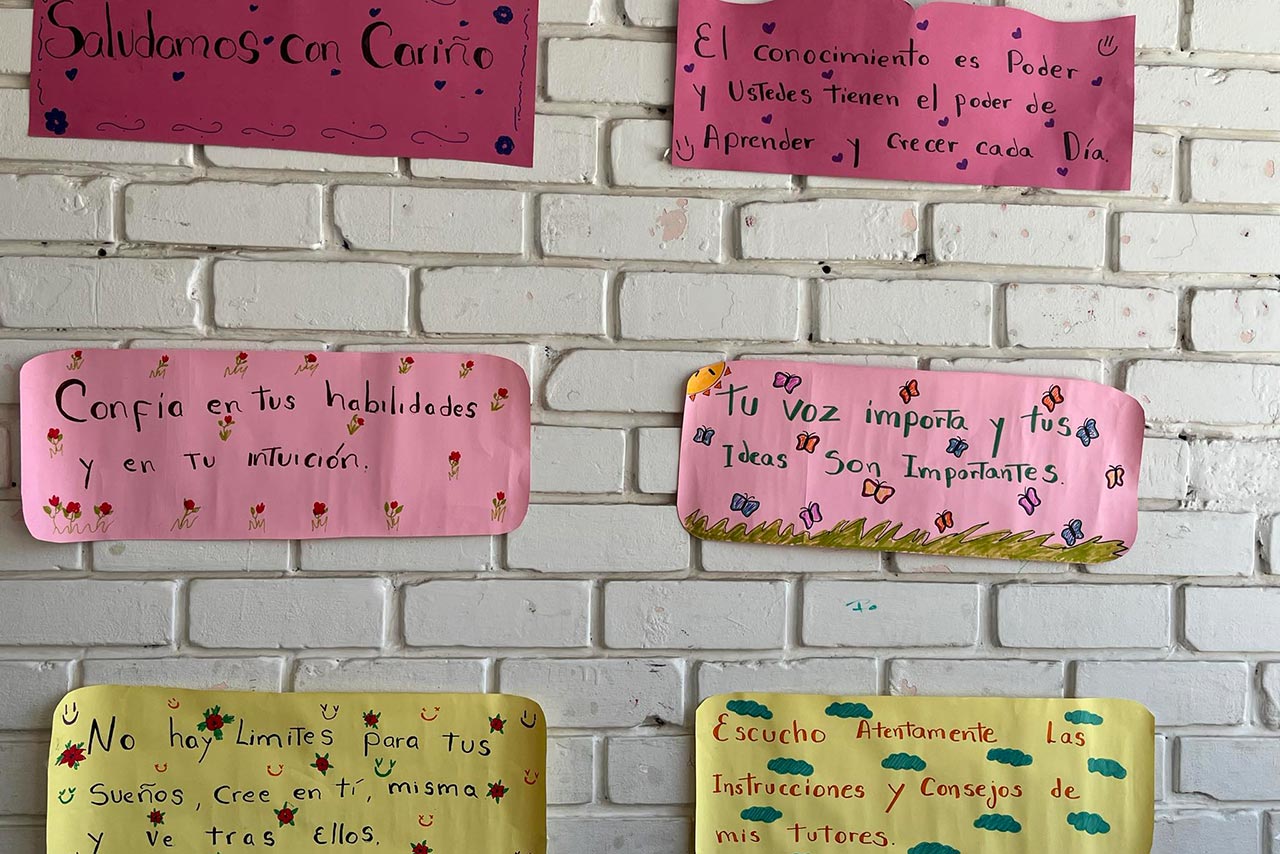 Saludamos con Cariño
El conocimiento es Poder
y Ustedes tienen el poder de
Aprender y crecer cada Día.
Confía en tus habilidades
y en tu intuición.
Tu voz importa y tus
Ideas Son Importantes.
No hay Limites para tus
Sueños, Cree en tí, misma
y ve tras Ellos.
Escucho Atentamente Las
Instrucciones y Consejos de
mis tutores.